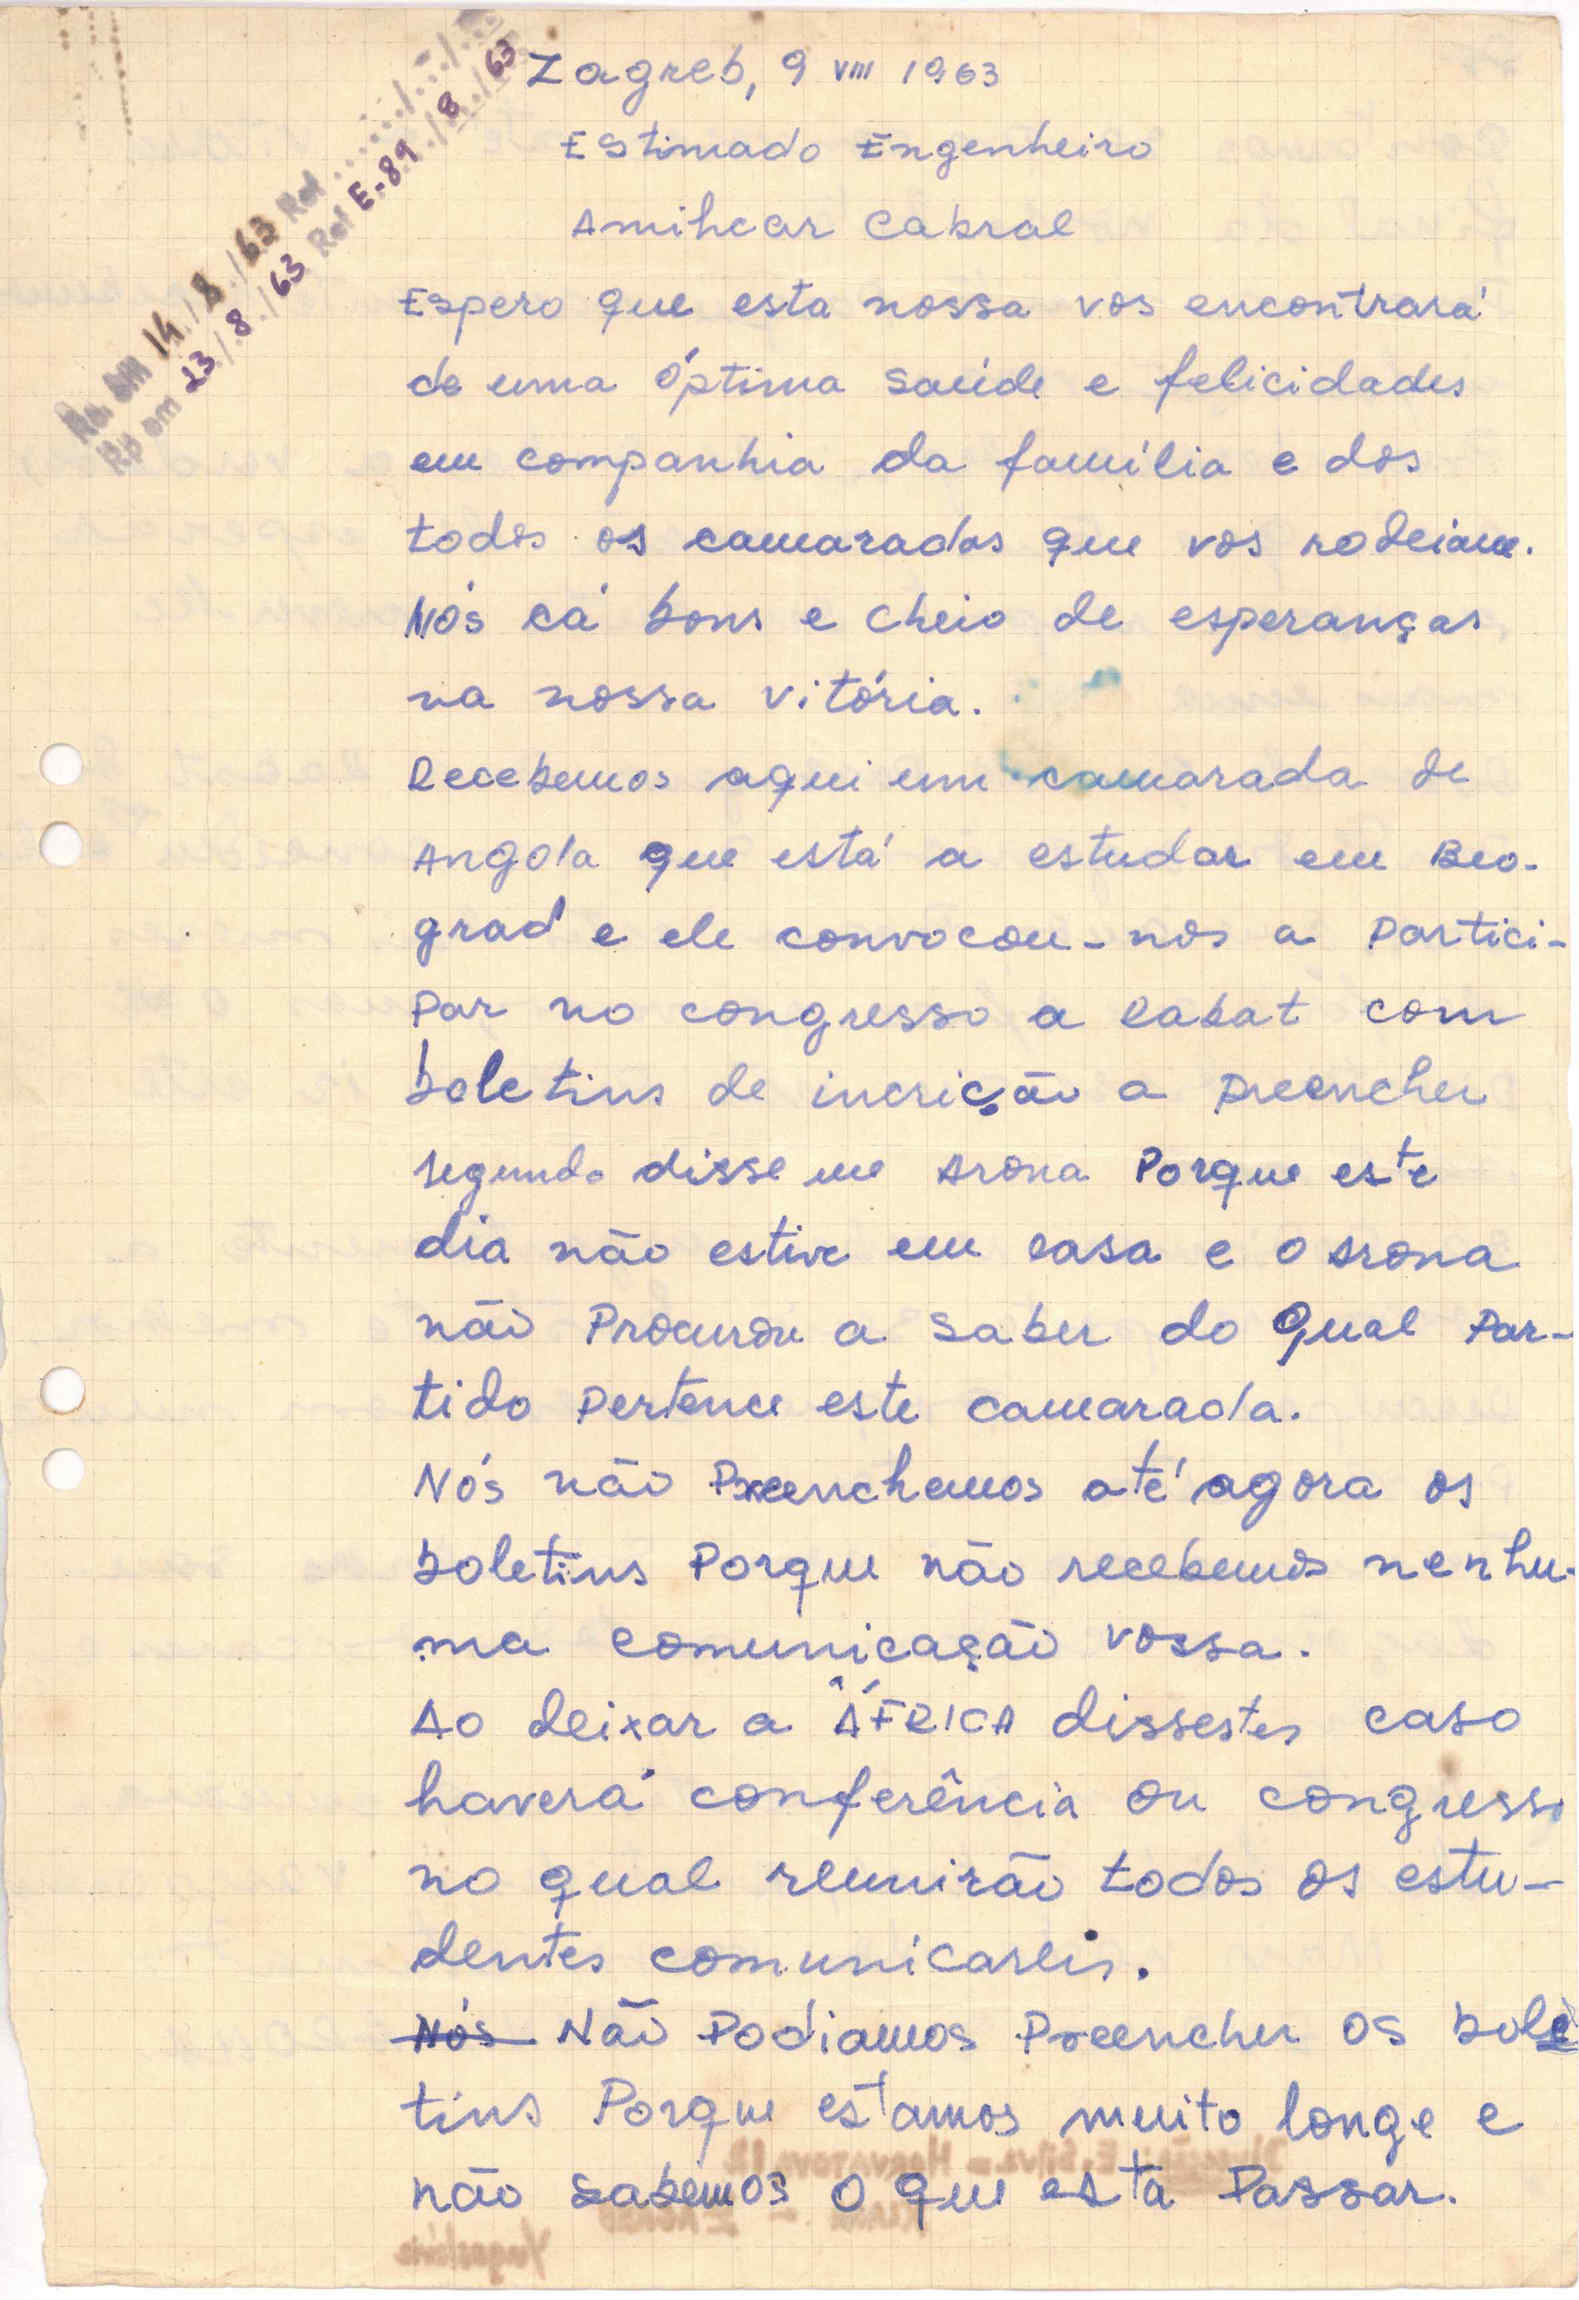 Zagreb, 9 VIII 1963
Estimado Engenheiro
Amilcar Cabral
Ra. em 14/8/63 Ref.
Rp em 23/8/63 Ref E-89/8/63
Espero que esta nossa vos encontrará
de uma óptima saúde e felicidades
em companhia da família e dos
todos os camaradas que vos rodeiam.
Nós cá bons e cheio de esperanças
na nossa vitória.
Recebemos aqui um camarada de
Angola que está a estudar em Beo-
grad e ele convocou-nos a partici-
par no congresso a Rabat com
boletins de incrição a preencher
segundo disse me Arona Porque este
dia não estive em casa e o Arona
não Procurou a saber do qual Par-
tido pertence este camarada.
Nós não Preenchemos até agora os
boletins Porque não recebemos nenhu-
ma comunicação vossa.
Ao deixar a ÁFRICA dissestes caso
haverá conferência ou congresso
no qual reunirão todos os estu-
dentes comunicareis.
Nós Não Podiamos Preencher os bole
tins Porque estamos muito longe e
não sabemos o que esta Passar.